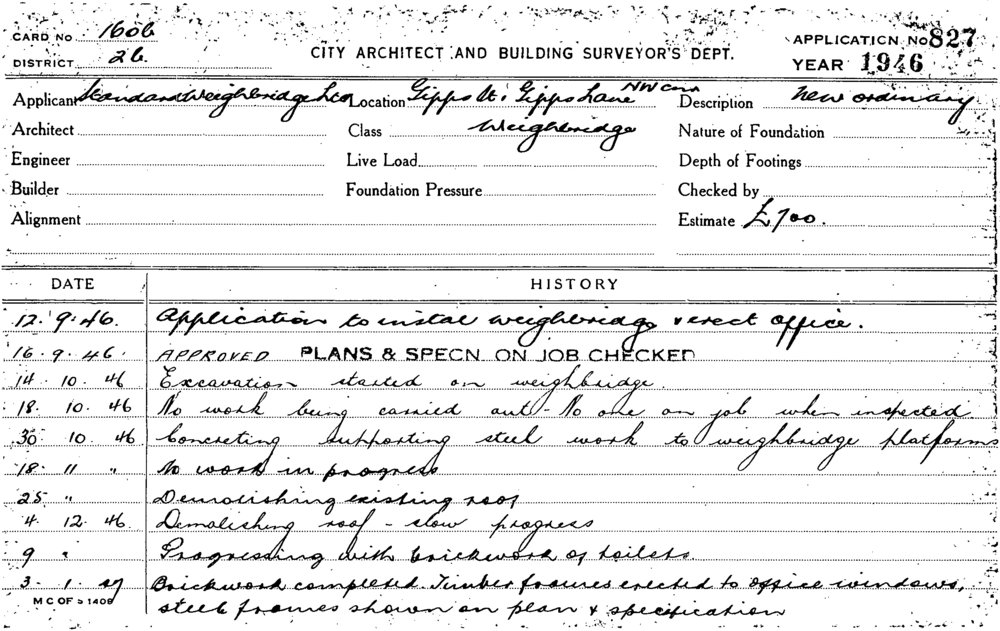 CARD NO 1606
DISTRICT 26.
CITY ARCHITECT AND BUILDING SURVEYOR'S DEPT.
APPLICATION NO 827
YEAR 1946
Applicant Standard Weighbridge Location Gipps St. Gipps Lane NW Cnr Description New ordinary
Architect Class Weighbridge Nature of Foundation
Engineer Live Load Depth of Footings
Builder Foundation Pressure Checked by
Alignment Estimate £700.
DATE HISTORY
12. 9. 46. Application to instal weighbridge & erect office.
16. 9. 46. APPROVED PLANS & SPECN. ON JOB CHECKED
14. 10. 46 Excavation started on weighbridge.
18. 10. 46 No work being carried out - No one on job when inspected
30 10. 46 Concreting supporting steel work to weighbridge platforms
18. 11 " No work in progress
25 " Demolishing existing roof
4. 12. 46. Demolishing roof - slow progress
9 " Progressing with brickwork of toilets
3. 1. 47 Brickwork completed. Timber frames erected to office windows,
M C OF 1406 steel frames shown on plan & specification